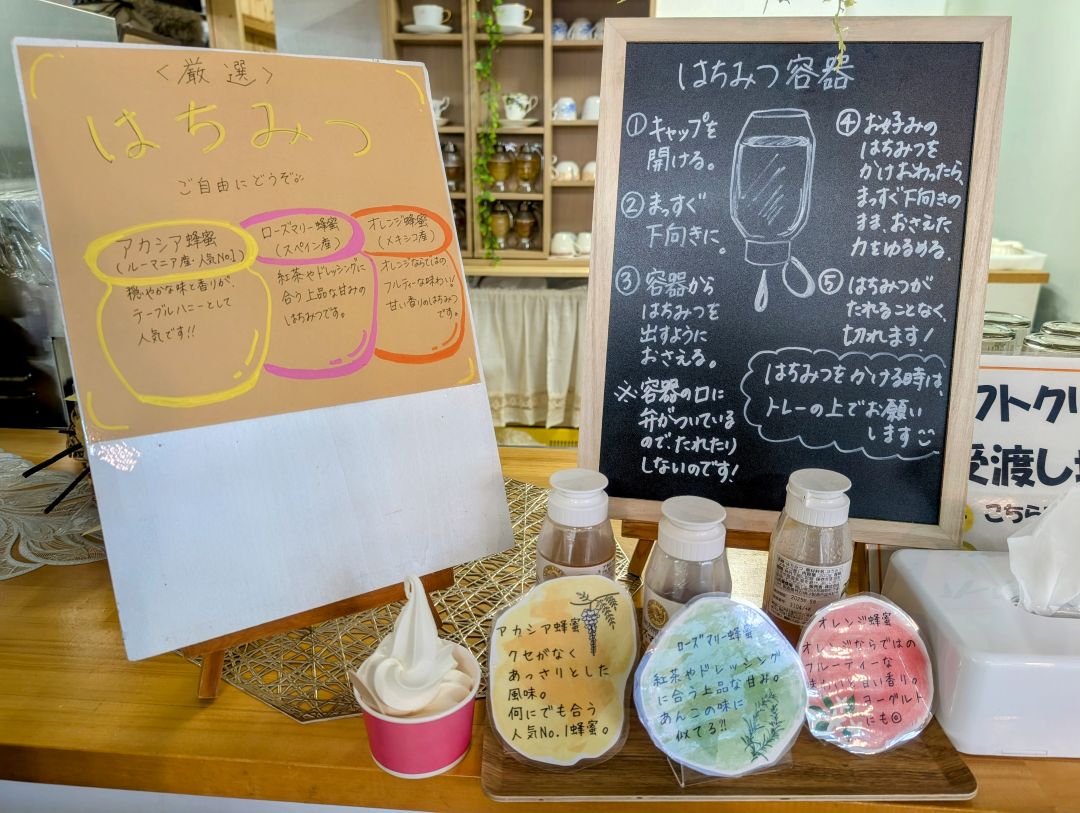 ＜厳選＞
はちみつ
ご自由にどうぞ。
アカシア蜂蜜
(ルーマニア産・人気No.1)
穏やかな味と香りが、
テーブルハニーとして
人気です!!
ローズマリー蜂蜜
(スペイン産)
紅茶やドレッシングに
合う上品な甘みの
はちみつです。
オレンジ蜂蜜
(メキシコ産)
オレンジならではの
フルティーな味わい!
甘い香りのはちみつ
です。
はちみつ容器
①キャップを
開ける。
②まっすぐ
下向きに。
③容器から
はちみつを
出すように
おさえる。
※容器の口に
弁がついている
のでたれたり
しないのです!
④お好みの
はちみつを
かけおわったら、
まっすぐ下向きの
まま、おさえた
力をゆるめる。
⑤はちみつが
たれることなく、
切れます!
はちみつをかける時は、
トレーの上でお願い
します
フトクリ
受渡し
こちら
アカシア蜂蜜
クセがなく
あっさりとした
風味。
何にでも合う
人気No.1蜂蜜。
ローズマリー蜂蜜
紅茶やドレッシング
に合う上品な甘み。
あんこの味に
似てる?!
オレンジ蜂蜜
オレンジならではの
フルーティーな
味わいと甘い香り。
ヨーグルト
にも◎